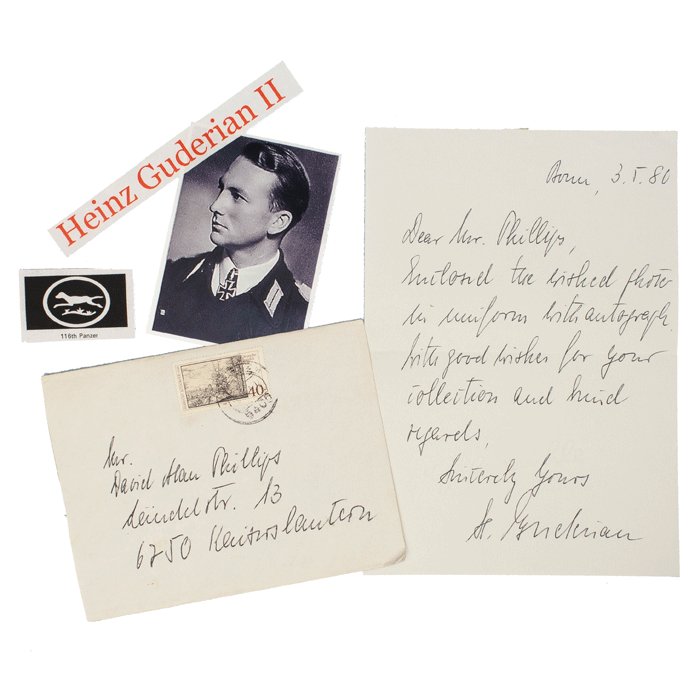 Heinz Guderian II
116th Panzer
40
Mr.
David Alan Phillips
13
6750 Kaiserslautern
Bonn, 3.I.80
Dear Mr. Phillips,
Enclosed the wished photo
in uniform with autograph
with good wishes for your
collection and kind
regards,
Sincerely Yours
H. Guderian